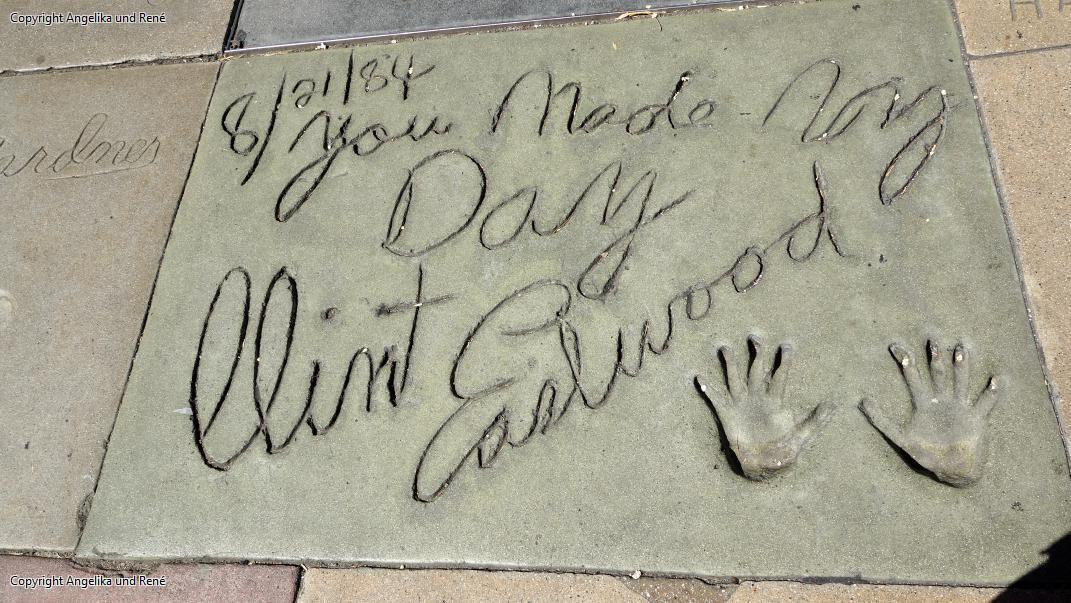 Copyright Angelika und René
8/21/84
You Made My
Day
Clint
Eastwood
ardner
Copyright Angelika und René